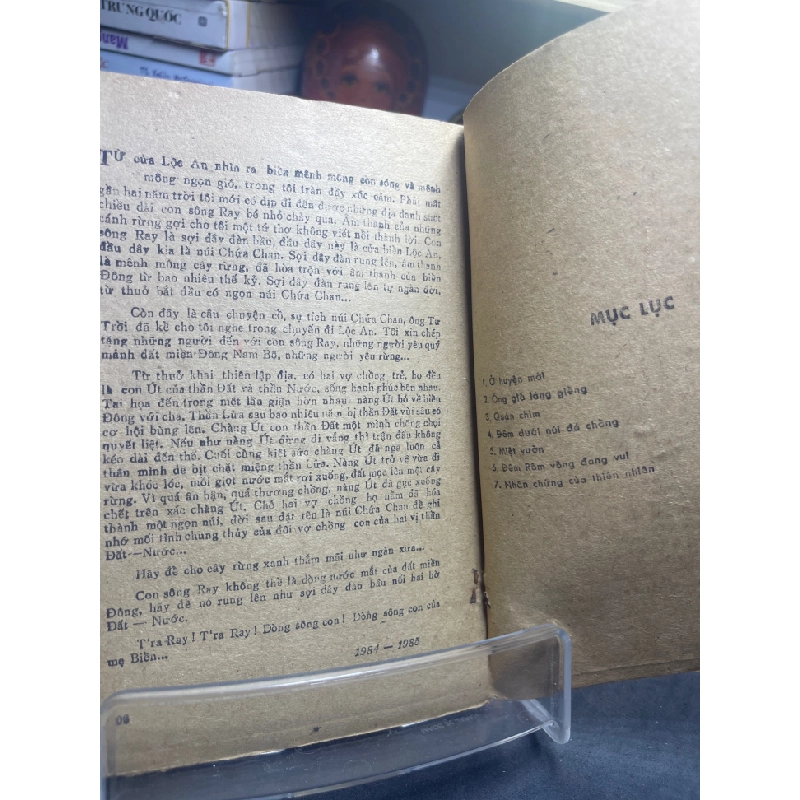 TRUNG QUỐC
TỪ cửa Lộc An nhìn ra biển mênh mông con sóng và mênh
mông ngọn gió, trong tôi tràn đầy xúc cảm. Phải mất
gần hai năm trời tôi mới có dịp đi đến được những địa danh suốt
chiều dài con sông Ray bé nhỏ chảy qua. Âm thanh của những
cánh rừng gợi cho tôi một tứ thơ không viết nổi thành lời. Con
sông Ray là sợi dây đàn bầu, đầu dây này là cửa biển Lộc An,
đầu dây kia là núi Chứa Chan. Sợi dây đàn rung lên, âm thanh
là mênh mông cây rừng, đã hòa trộn với âm thanh của biển
Đông từ bao nhiêu thế kỷ. Sợi dây đàn rung lên tự ngàn đời,
từ thuở bắt đầu có ngọn núi Chứa Chan...
Còn đây là câu chuyện cũ, sự tích núi Chứa Chan, ông Tư
Trời đã kể cho tôi nghe trong chuyến đi Lộc An. Tôi xin chép
tặng những người đến với con sông Ray, những người yêu quý
mảnh đất miền Đông Nam Bộ, những người yêu rừng...
Từ thuở khai thiên lập địa, có hai vợ chồng trẻ, họ đều
là con Út của thần Đất và thần Nước, sống hạnh phúc bên nhau.
Tai họa đến trong một lần giận hờn nhau, nàng Út bỏ về biển
Đông với cha. Thần Lửa sau bao nhiêu năm bị thần Đất vùi sâu có
cơ hội bùng lên. Chàng Út con thần Đất một mình chống chọi
quyết liệt. Nếu như nàng Út đừng đi vắng thì trận đấu không
kéo dài đến thế. Cuối cùng kiệt sức chàng Út đã ngã luôn cả
thân mình để bịt chặt miệng thần Lửa. Nàng Út trở về vừa đi
vừa khóc lóc, mỗi giọt nước mắt rơi xuống, đất mọc lên một cây
rừng. Vì quá ân hận, quá thương chồng, nàng Út đã gục xuống
chết trên xác chàng Út. Chỗ hai vợ chồng họ nằm đã hóa
thành một ngọn núi, đời sau đặt tên là núi Chứa Chan để ghi
nhớ mối tình chung thủy của đôi vợ chồng con của hai vị thần
Đất—Nước...
Hãy để cho cây rừng xanh thắm mãi như ngàn xưa...
Con sông Ray không thể là dòng nước mắt của đất miền
Đông, hãy để nó rung lên như sợi dây đàn bầu nối hai bờ
Đất — Nước.
T'ra Ray! T'ra Ray! Dòng sông con! Dòng sông con của
mẹ Biển...
1984 — 1985
MỤC LỤC
1. Ở huyện mới
2. Ông già láng giềng
3. Quán chim
4. Đêm dưới núi đá chồng
5. Miệt vườn
6. Đêm Rằm vòng đang vui
7. Nhân chứng của thiên nhiên